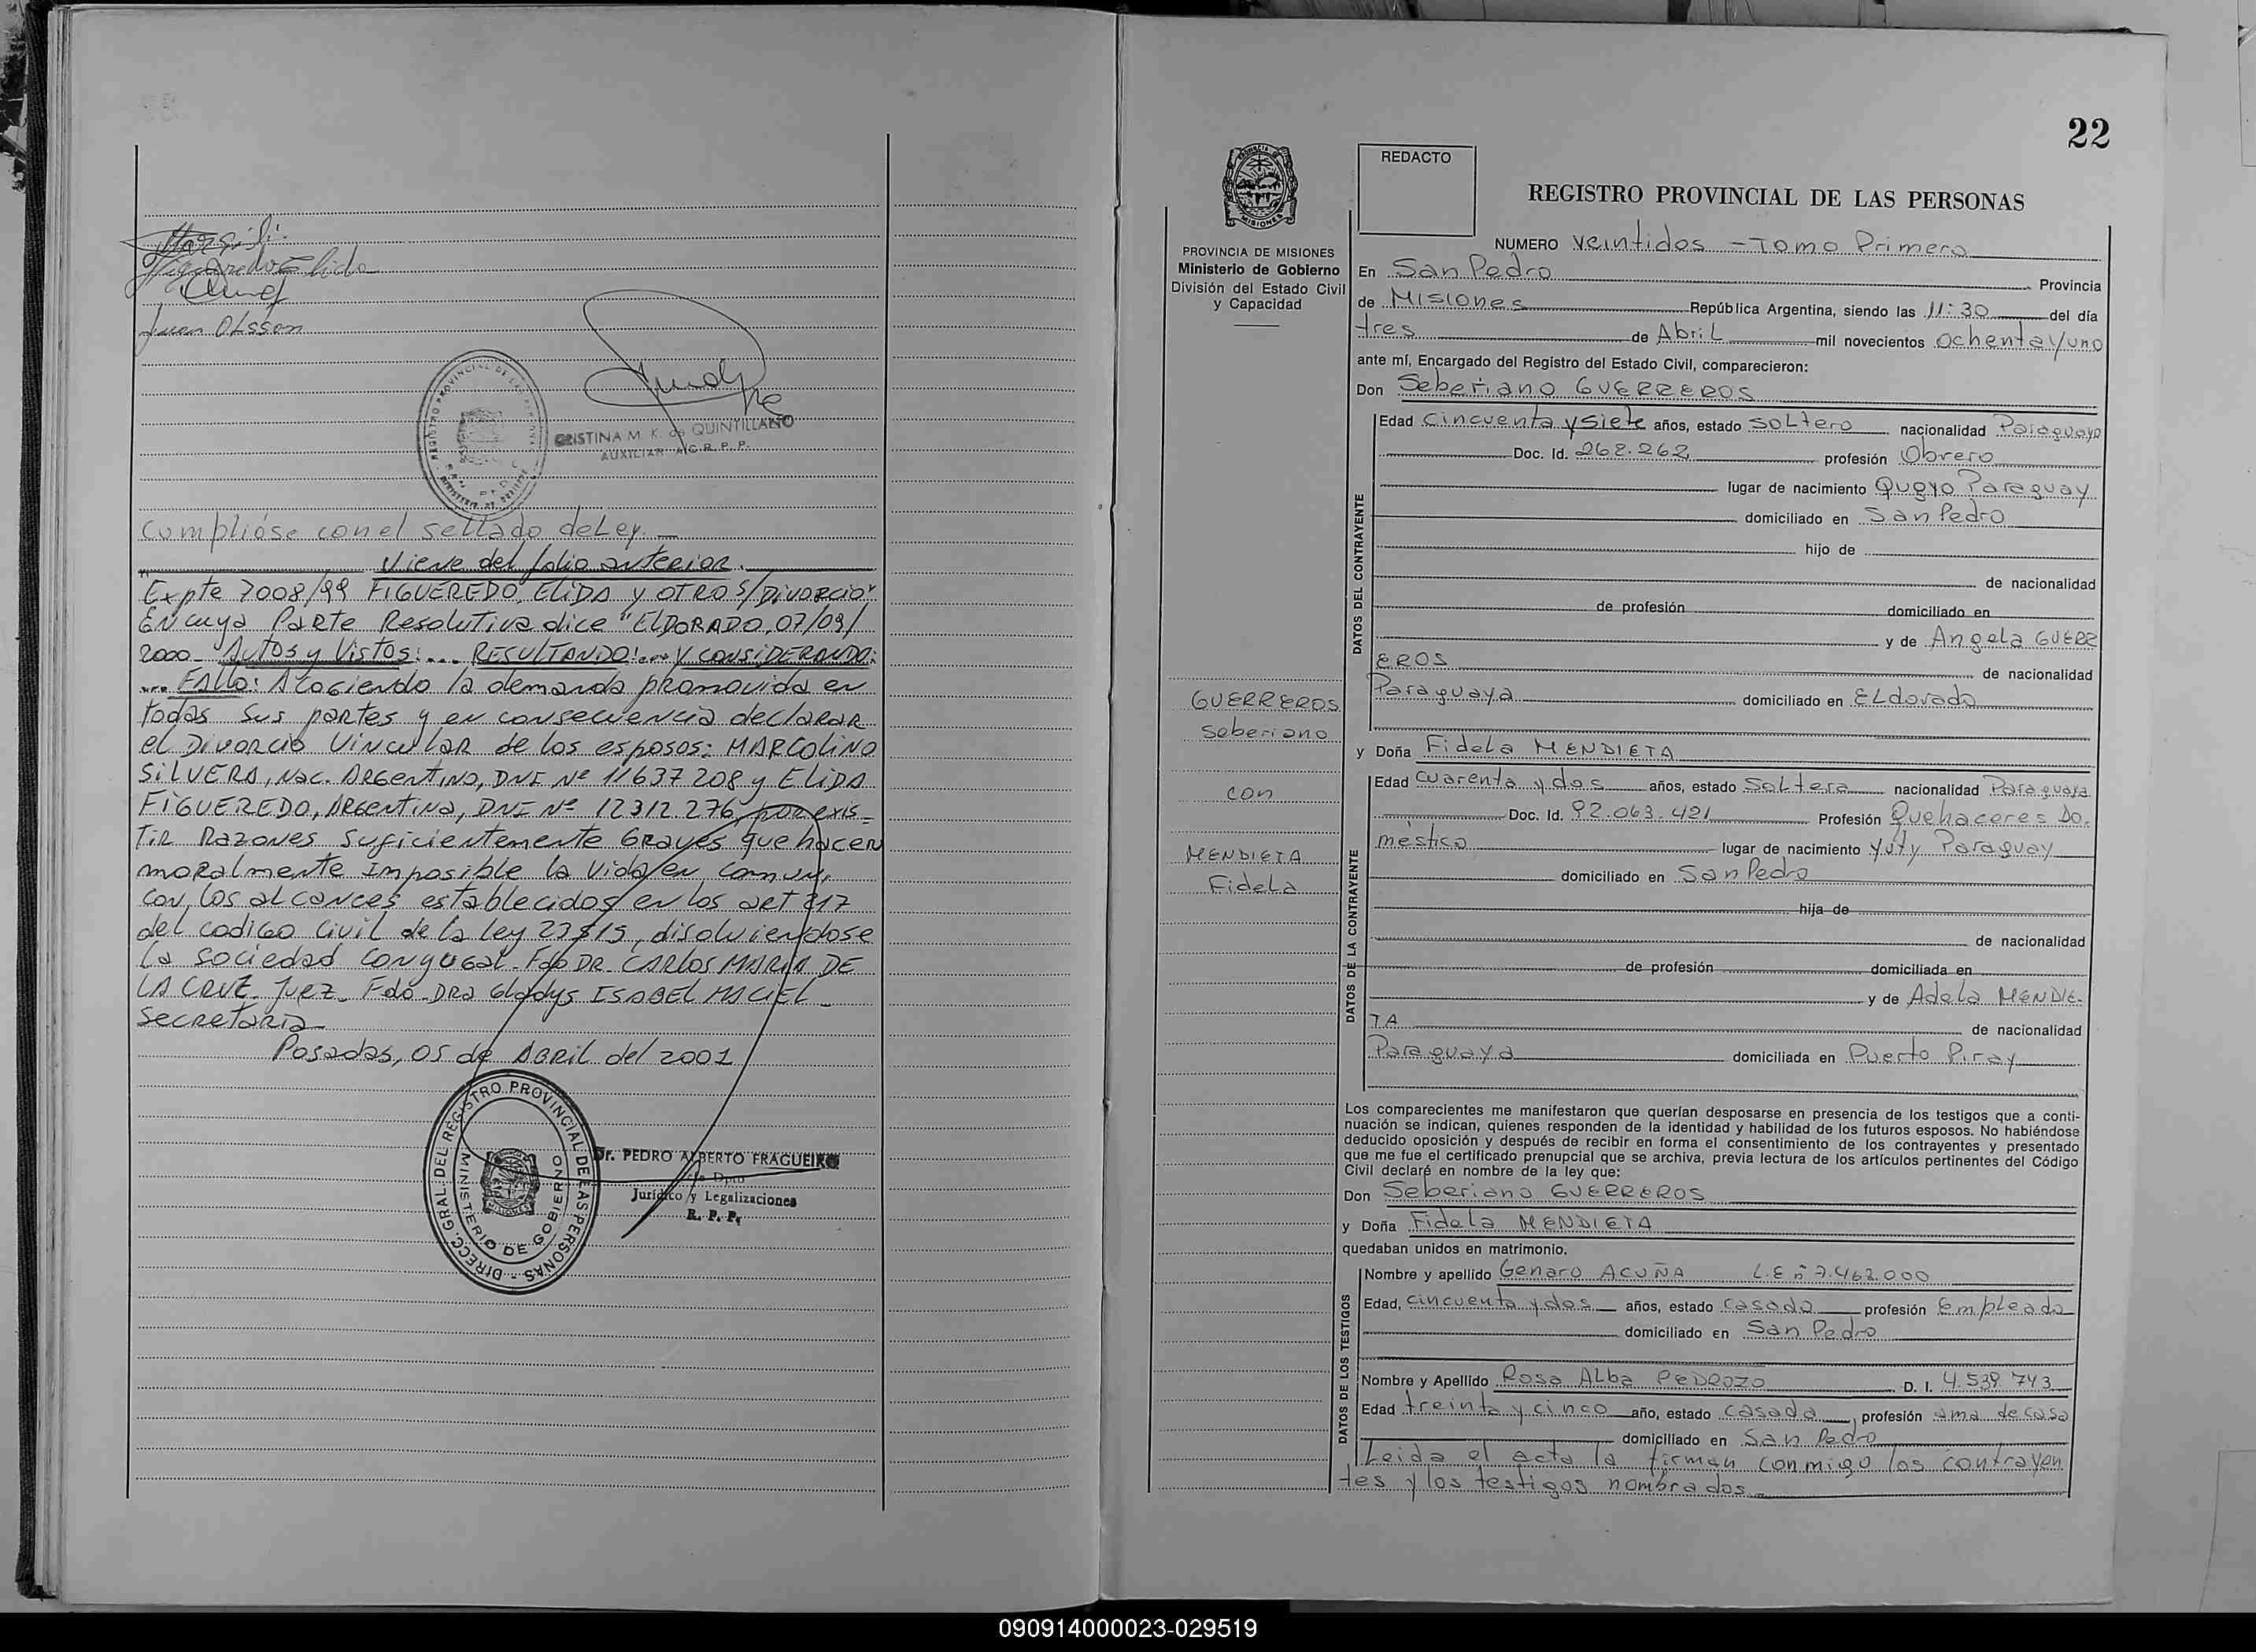 Figueredo Elida
Juan Olsson
REGISTRO PROVINCIAL DE LAS PERSONAS
CRISTINA M. K. de QUINTILLANO
AUXILIAR R.P.P.
Cumplióse con el sellado de Ley.—
Viene del folio anterior.
"Expte 7008/99 FIGUEREDO, ELIDA y OTRO S/DIVORCIO"
EN cuya Parte Resolutiva dice "ELDORADO, 07/09/
2000- AUTOS y VISTOS:... RESULTANDO:... Y CONSIDERANDO:
... FALLO: Acogiendo la demanda promovida en
todas sus partes y en consecuencia declarar
el Divorcio Vincular de los esposos: MARCOLINO
SILVERA, Nac. Argentino, DNI Nº 11637208 y ELIDA
FIGUEREDO, Argentina, DNI Nº 12312.276, por exis-
tir Razones Suficientemente Graves que hacen
moralmente Imposible la Vida en comun,
con los alcances establecidos en los art 217
del codigo Civil de la ley 23515, disolviendose
la sociedad conyugal- Fdo DR. CARLOS MARIA DE
LA CRUZ- Juez- Fdo- DRA Gladys ISABEL MACIEL-
Secretaria-
Posadas, 05 de Abril del 2001
DIRECC. GRAL. DEL REGISTRO PROVINCIAL DE LAS PERSONAS -
MINISTERIO DE GOBIERNO
Dr. PEDRO ALBERTO FRAGUEIRO
Dpto
Jurídico y Legalizaciones
R. P. P.
22
REDACTO
PROVINCIA DE MISIONES
Ministerio de Gobierno
División del Estado Civil
y Capacidad
GUERREROS
Seberiano
con
MENDIETA
Fidela
REGISTRO PROVINCIAL DE LAS PERSONAS
NUMERO Veintidos - Tomo Primero
En San Pedro Provincia
de Misiones República Argentina, siendo las 11:30 del día
tres de Abril mil novecientos ochenta y uno
ante mí, Encargado del Registro del Estado Civil, comparecieron:
Don Seberiano GUERREROS
DATOS DEL CONTRAYENTE
Edad Cincuenta y siete años, estado Soltero nacionalidad Paraguayo
Doc. Id. 262.262 profesión Obrero
lugar de nacimiento Paraguay
domiciliado en San Pedro
hijo de
de nacionalidad
de profesión domiciliado en
y de Angela GUERR
EROS de nacionalidad
Paraguaya domiciliado en ELdorado
y Doña Fidela MENDIETA
DATOS DE LA CONTRAYENTE
Edad cuarenta y dos años, estado Soltera nacionalidad Paraguaya
Doc. Id. 92.063.421 Profesión Quehaceres Do-
mestico lugar de nacimiento Yuty Paraguay
domiciliado en San Pedro
hija de
de nacionalidad
de profesión domiciliada en
y de Adela MENDIE-
TA de nacionalidad
Paraguaya domiciliada en Puerto Piray
Los comparecientes me manifestaron que querían desposarse en presencia de los testigos que a conti-
nuación se indican, quienes responden de la identidad y habilidad de los futuros esposos. No habiéndose
deducido oposición y después de recibir en forma el consentimiento de los contrayentes y presentado
que me fue el certificado prenupcial que se archiva, previa lectura de los artículos pertinentes del Código
Civil declaré en nombre de la ley que:
Don Seberiano GUERREROS
y Doña Fidela MENDIETA
quedaban unidos en matrimonio.
DATOS DE LOS TESTIGOS
Nombre y apellido Genaro ACUÑA L.E nº 7.462.000
Edad, cincuenta y dos años, estado casado profesión empleado
domiciliado en San Pedro
Nombre y Apellido Rosa Alba PEDROZO D. I. 4.539.743
Edad treinta y cinco año, estado casada, profesión ama de casa
domiciliado en San Pedro
Leida el acta la firman conmigo los contrayen
tes y los testigos nombrados.
090914000023-029519